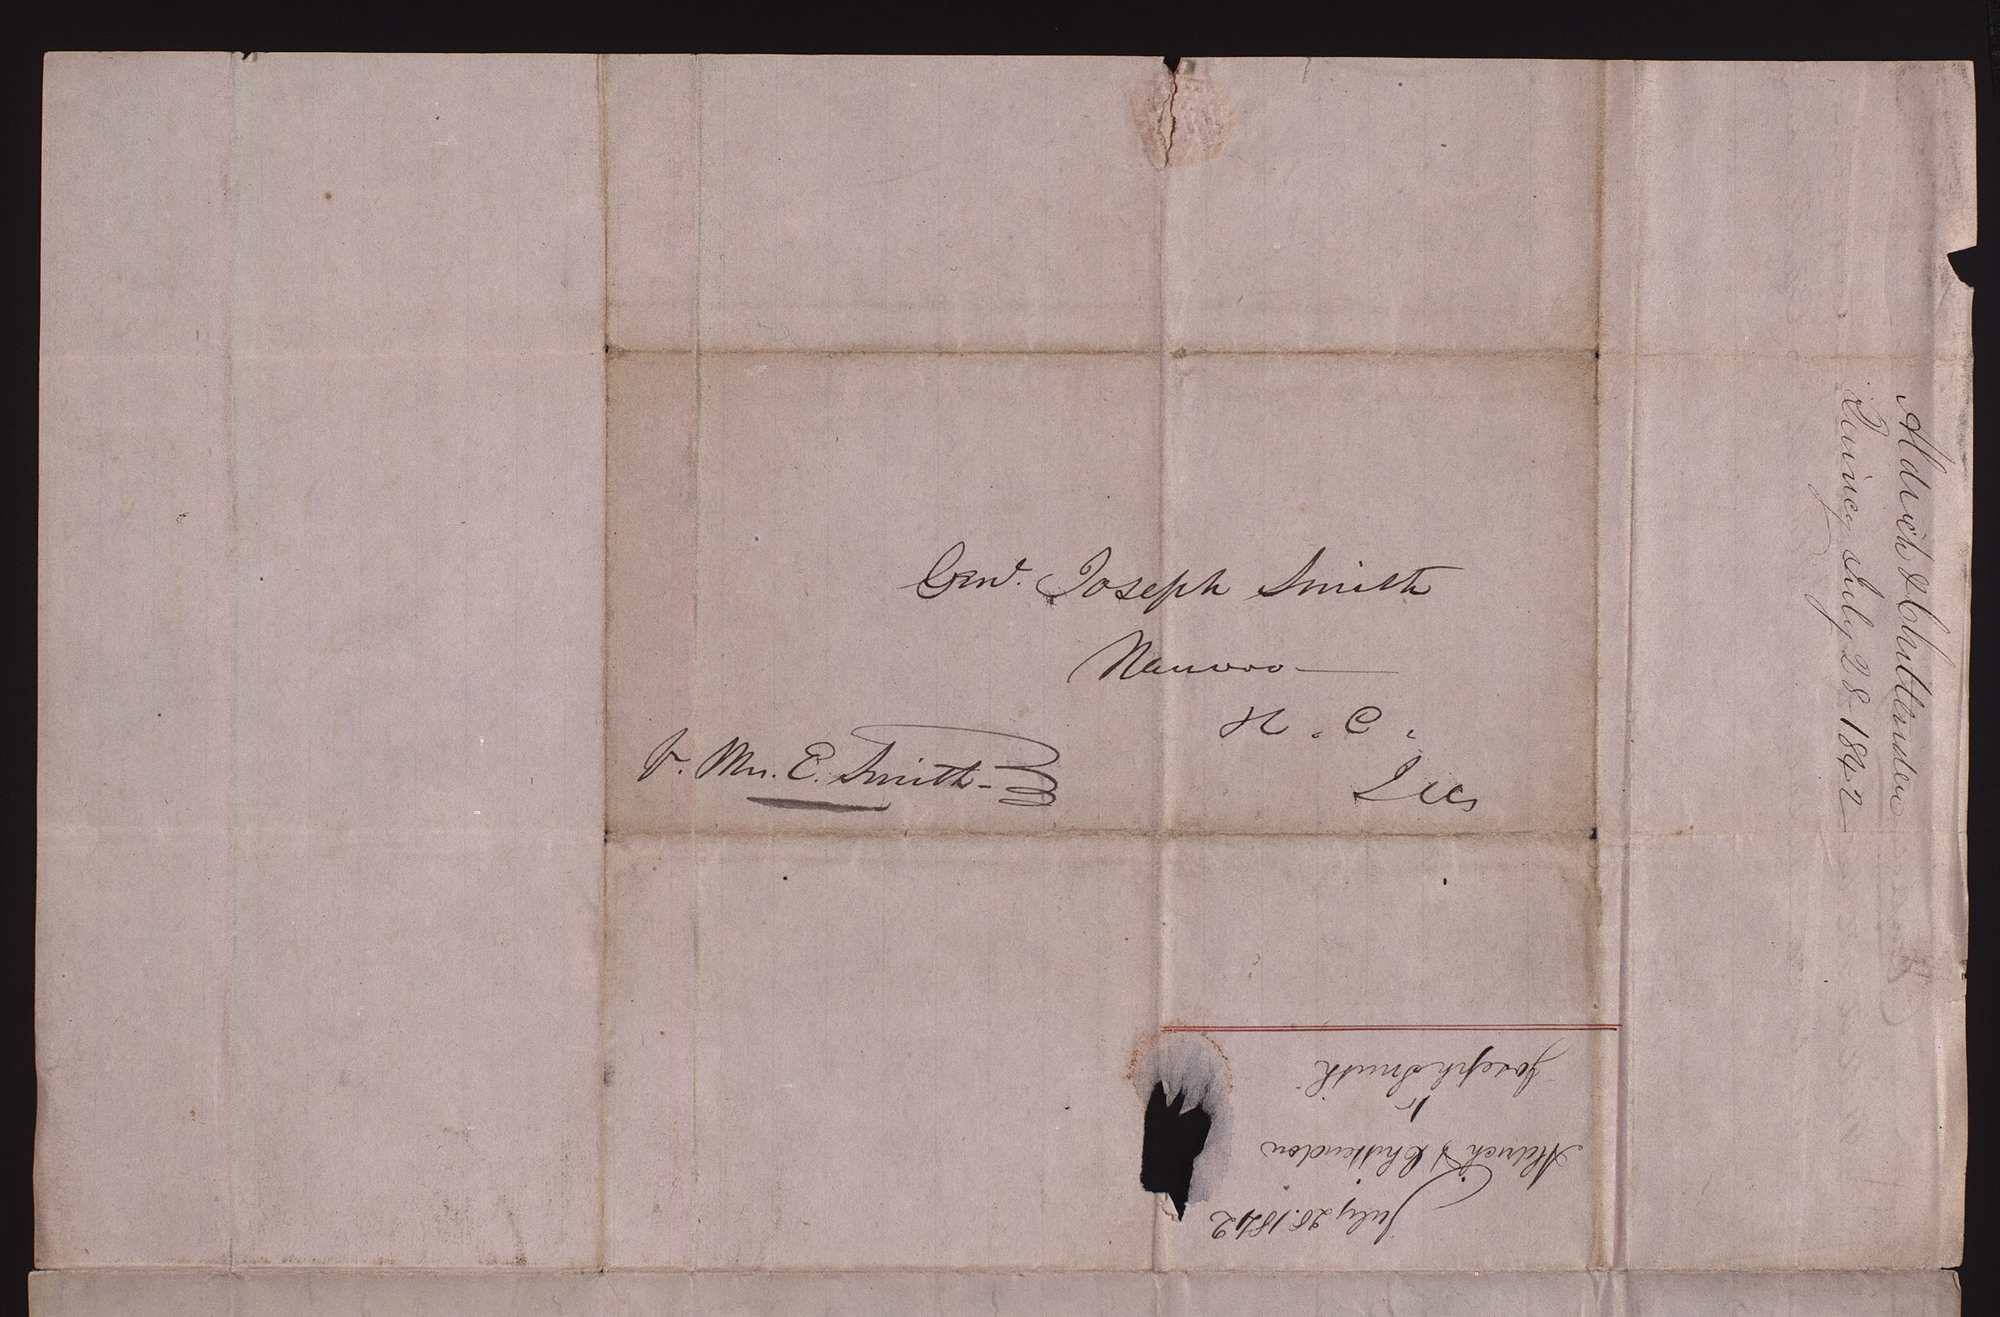 Genl. Joseph Smith
Nauvoo
H. C.
Ills
Pr. Mrs. E. Smith
Aldrich & Chittenden
Quincy July 28 1842
July 28. 1842
Aldrich & Chittenden
to
Joseph Smith